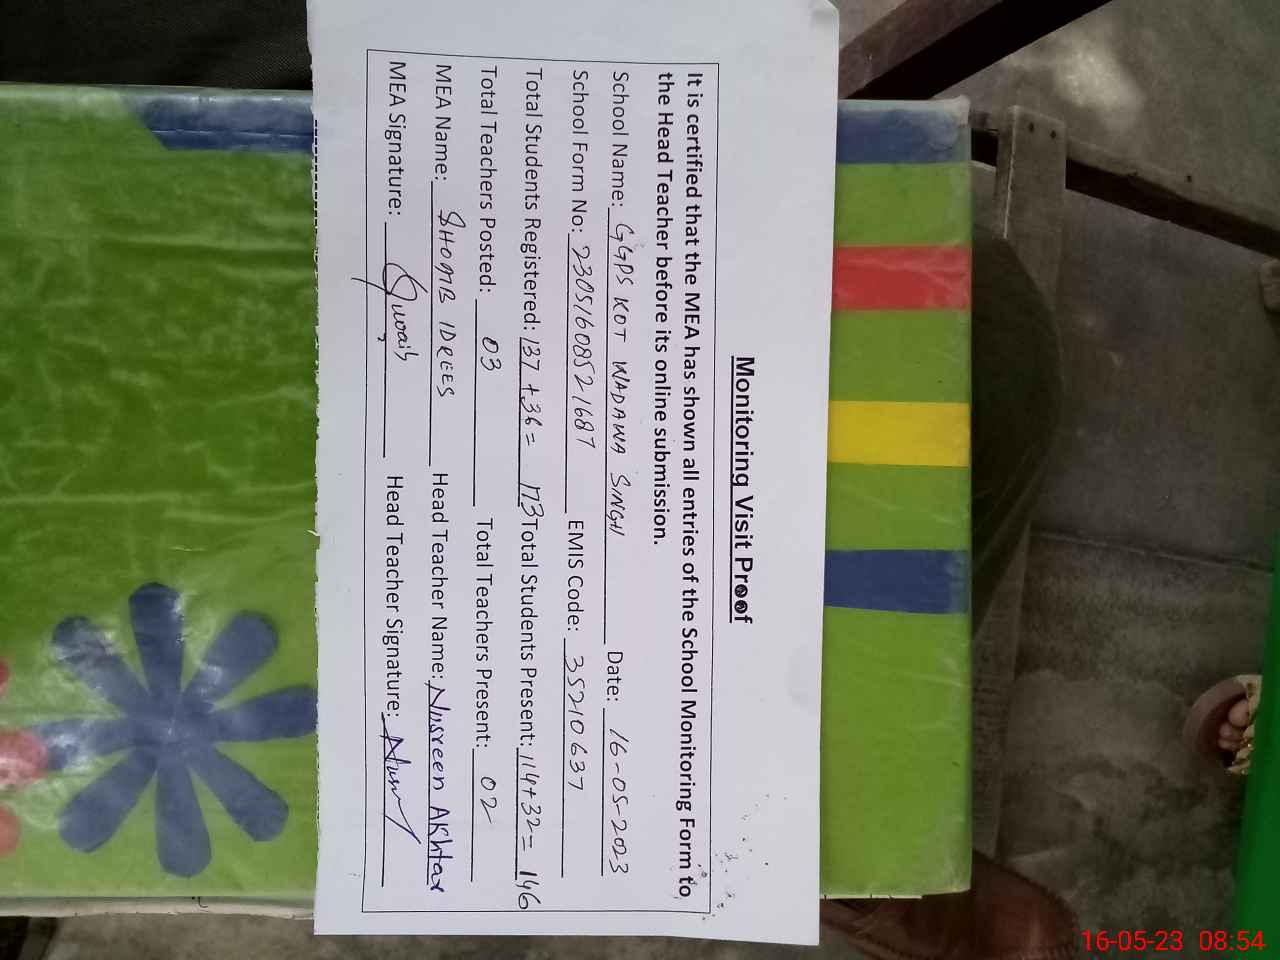 Monitoring Visit Proof
It is certified that the MEA has shown all entries of the School Monitoring Form to
the Head Teacher before its online submission.
School Name: GGPS KOT WADAWA SINGH Date: 16-05-2023
School Form No: 23051608521687 EMIS Code: 35210637
Total Students Registered: 137 + 36 = 173 Total Students Present: 114+32= 146
Total Teachers Posted: 03 Total Teachers Present: 02
MEA Name: SHOAIB IDREES Head Teacher Name: Nasreen Akhtar
MEA Signature: Head Teacher Signature:
16-05-23 08:54